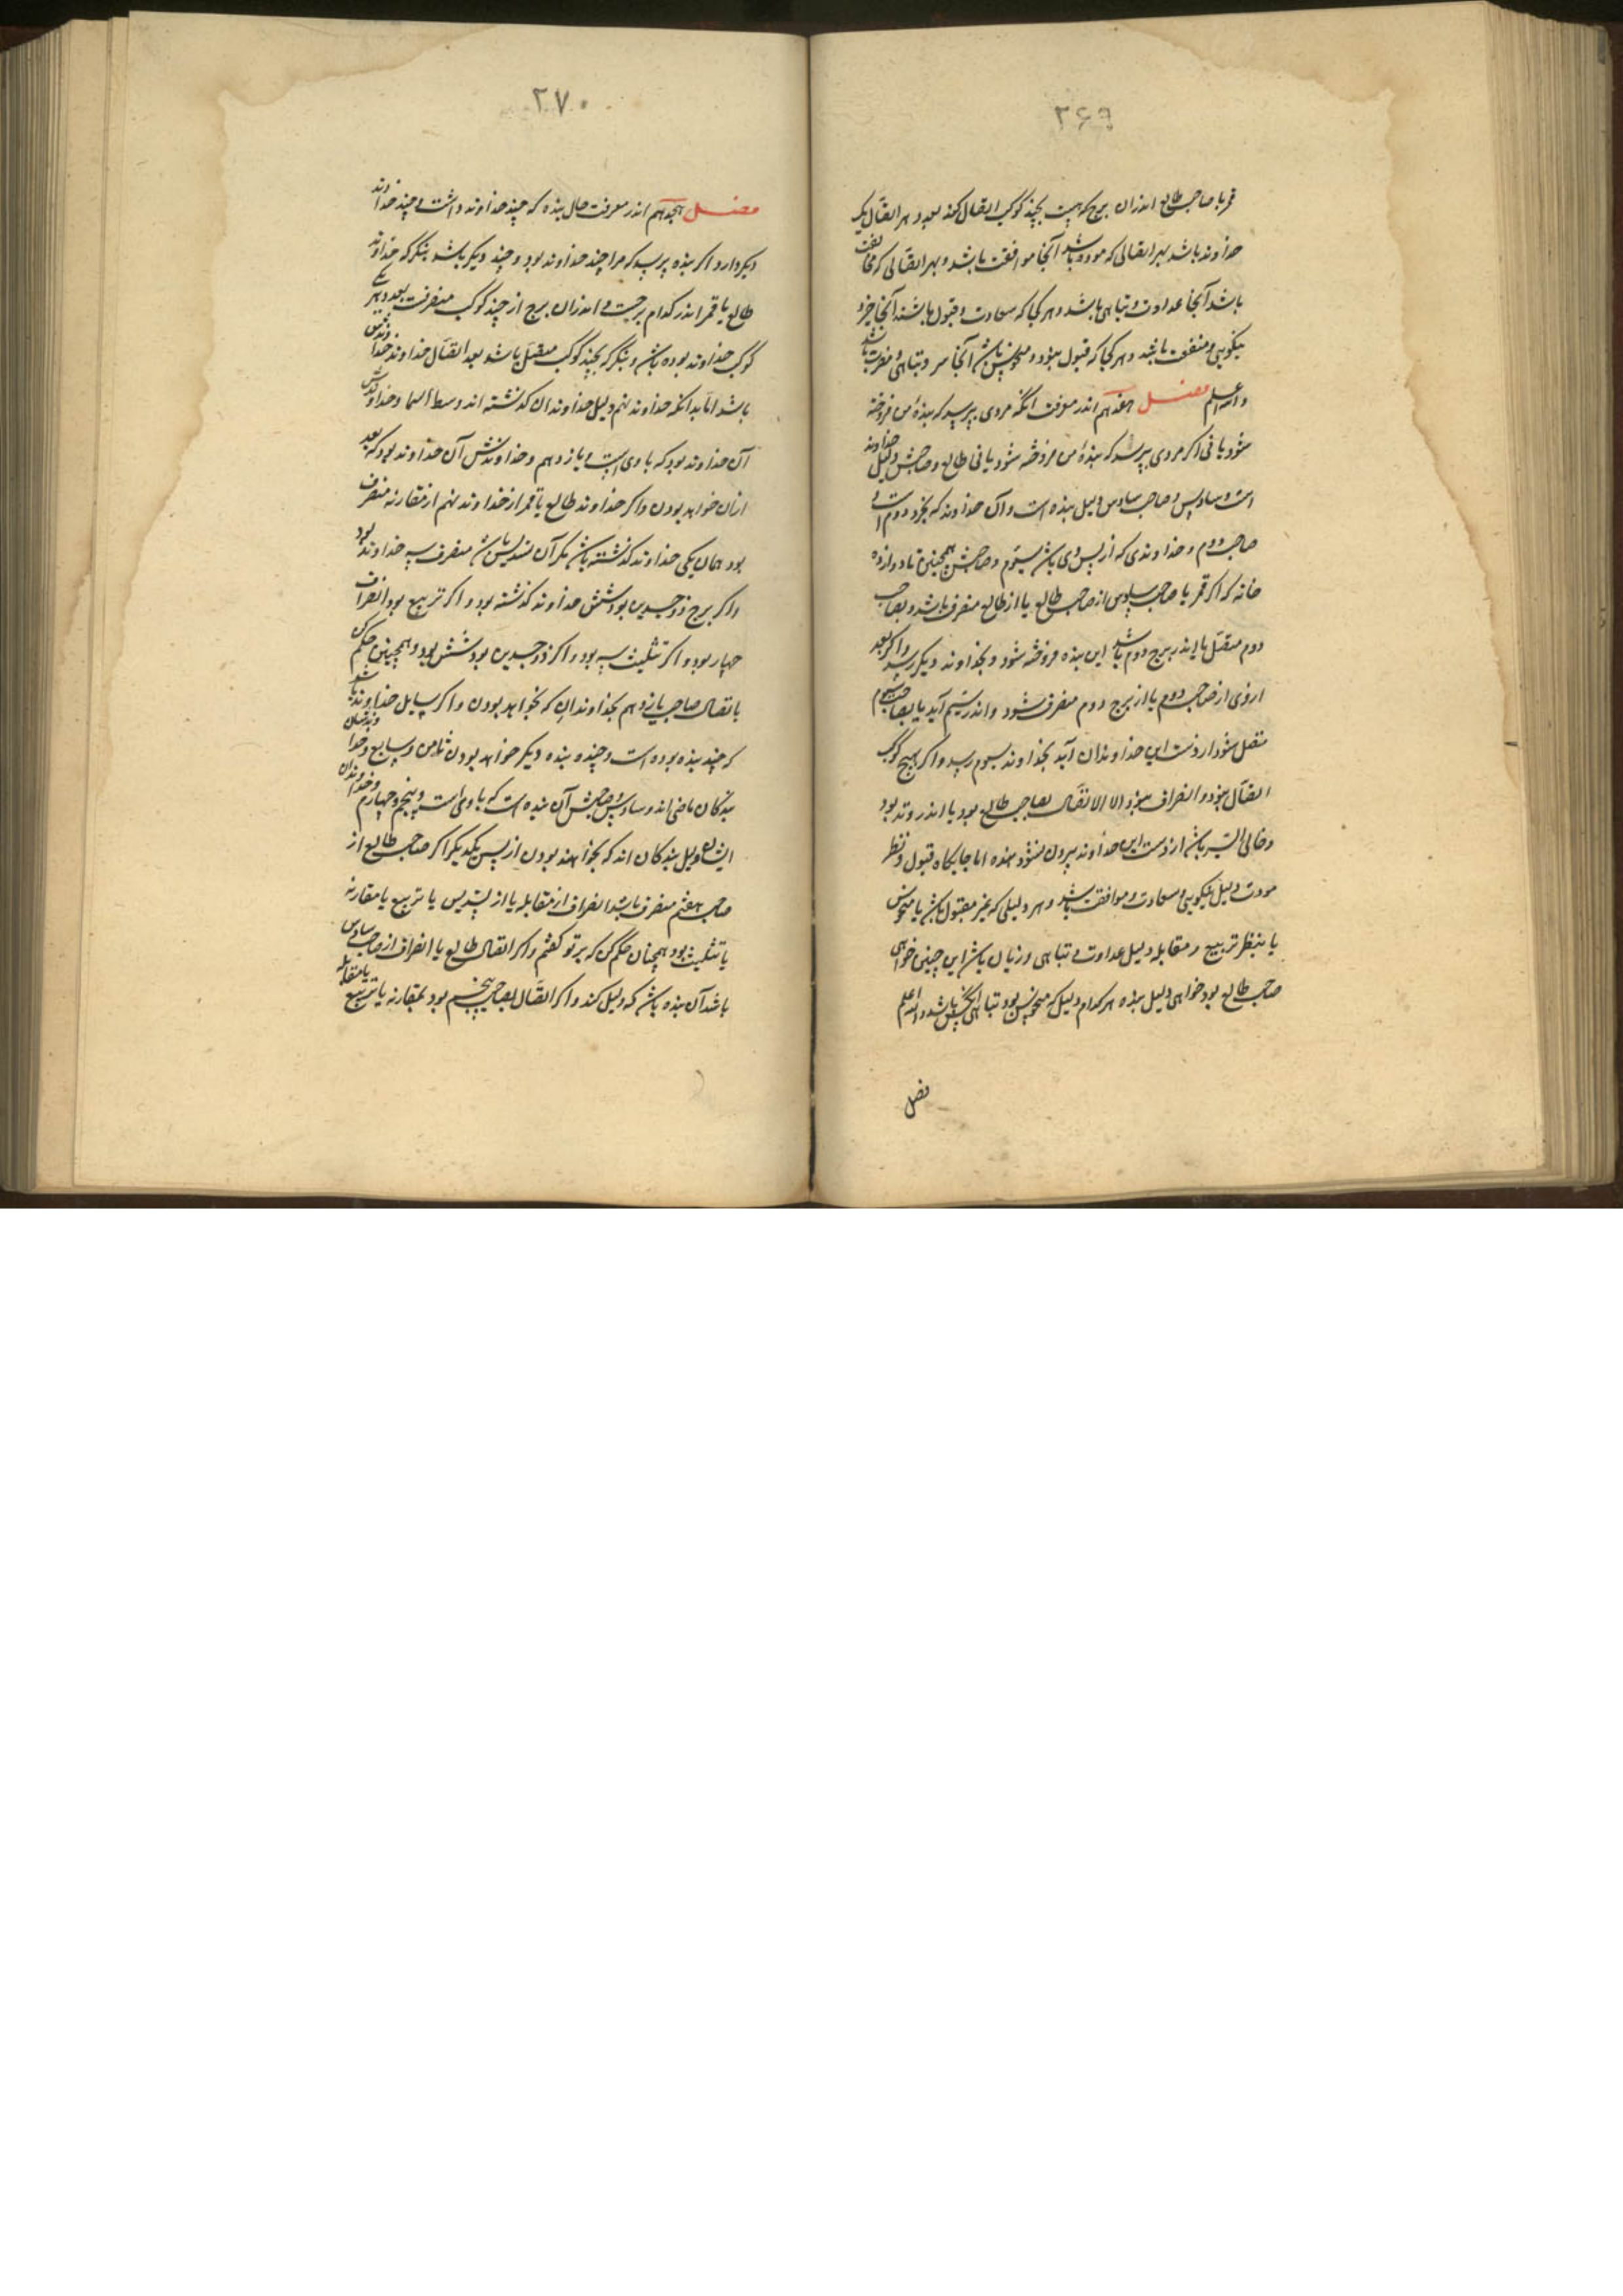 ۲۶۹
قمر یا صاحب طالع اندران برج که هست بچند کوکب اتصال کند بعدد هر اتصال یک
خداوند باشد بهر اتصالی که مودت باشد آنجا موافقت باشد و بهر اتصالی که مخالفت
باشد آنجا عداوت و تباهی باشد و هر کجا که سعادت و قبول باشند آنجا خیر و
نیکویی و منفعت باشد و هر کجا که قبول نبود و منحوس باشد آنجا و تباهی و مضرت باشد
والله اعلم فصل هفدهم اندر معرفت آنکه مردی بپرسد که بنده من فروخته
شود یا نی اگر مردی پرسد که بنده من فروخته شود یا نی طالع و صاحبش دلیل خداوند
است و سادس و صاحب سادس دلیل بنده است و آن خداوند که بخرد دوم است و
صاحب دوم و خداوندی که از پس وی باشد سیوم و صاحبش همچنین تا دوازده
خانه که اگر قمر یا صاحب سادس از صاحب طالع یا از طالع منصرف باشد و بصاحب
دوم متصل یا اندر برج دوم باشد این بنده فروخته شود و بخداوند دیگر رسد و اگر بعد
ازوی از صاحب دوم یا از برج دوم منصرف شود و اندر سیم آید یا بصاحب سیوم
متصل شود از دست این خداوندان آید بخداوند سیوم رسد و اگر بهیچ کوکب
اتصال نبود و انصراف نبود الا الاتصال بصاحب طالع بود یا اندر وتد بود
و خالی السیر باشد از دست این خداوند بیرون نشود بنده اما جایگاه قبول و نظر
مودت دلیل نیکویی و سعادت و موافقت باشد و هر دلیلی که غیر مقبول باشد یا منحوس
یا بنظر تربیع و مقابله دلیل عداوت و تباهی و زیان باشد این چنین خواهی
صاحب طالع بود خواهی دلیل بنده هر کدام دلیل که منحوس بود تباهی آنکس باشد والله اعلم
فصل
۲۷۰
فصل هجدهم اندر معرفت حال بنده که چند خداوند داشت و چند خداوند
دیگر دارد اگر بنده بپرسد که مرا چند خداوند بود و چند دیگر باشد بنگر که خداوند
طالع یا قمر اندر کدام برجست و اندران برج از چند کوکب منصرفست بعدد هر یکی
کوکب خداوند بوده باشد و بنگر که بچند کوکب متصل باشد بعد اتصال خداوند خداوندش
باشد اما بدانکه خداوند نهم دلیل خداوندان گذشته اند وسط السما و خداوندش
آن خداوند بود که با وی است و یازدهم و خداوندش آن خداوند بود که بعد
ازان خواهد بودن و اگر خداوند طالع یا قمر از خداوند نهم از مقارنه منصرف
بود همان یکی خداوند گذشته باشد مگر آن تسدیس باشد منصرف سه خداوند بود
و اگر برج ذوجسدین بود شش خداوند گذشته بود و اگر تربیع بود انصراف
چهار بود و اگر تثلیث سه بود و اگر ذوجسدین بود شش بود و همچنین حکم کن
باتصال صاحب یازدهم بخداوندان که بخواهد بودن و اگر سایل خداوند باشد
که چند بنده بوده است و چند بنده دیگر خواهد بودن ثامن و سابع و خداوندشان
بندگان ماضی اند و سادس و صاحبش آن بنده است که با وی است و پنجم و چهارم و خداوندان
ایشان دلیل بندگان اند که بخواهند بودن از پس یکدیگر اگر صاحب طالع از
صاحب هفتم منصرف باشد انصراف از مقابله یا از تسدیس یا تربیع یا مقارنه
یا تثلیث بود همچنان حکم کن که بر تو گفتم و اگر اتصال طالع یا انصراف از صاحب سادس
باشد آن بنده باشد که دلیل کند و اگر اتصال بصاحب پنجم بود بمقارنه یا تربیع یا مقابله